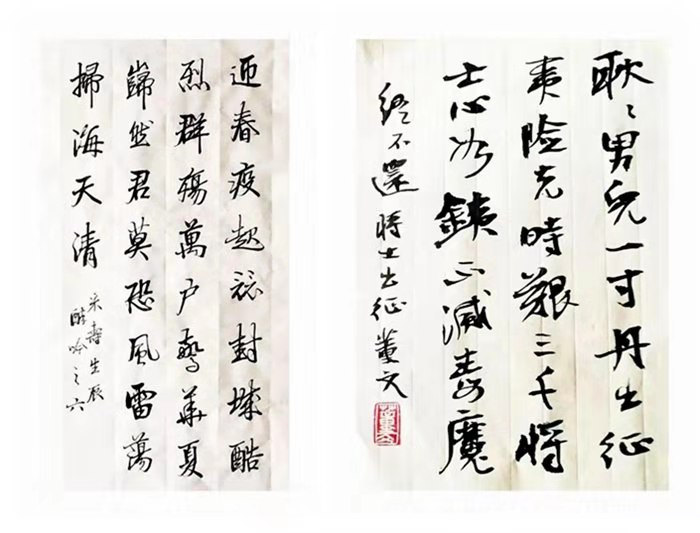 迎春疫起忽封城酷
烈群殤萬户驚華夏
巋然君莫恐風雷蕩
掃海天清
米壽生辰
吟之六
耿〻男兒一寸丹出征
夷险克時艱三千將
士心如銕不滅毒魔
終不還 將士出征 董文